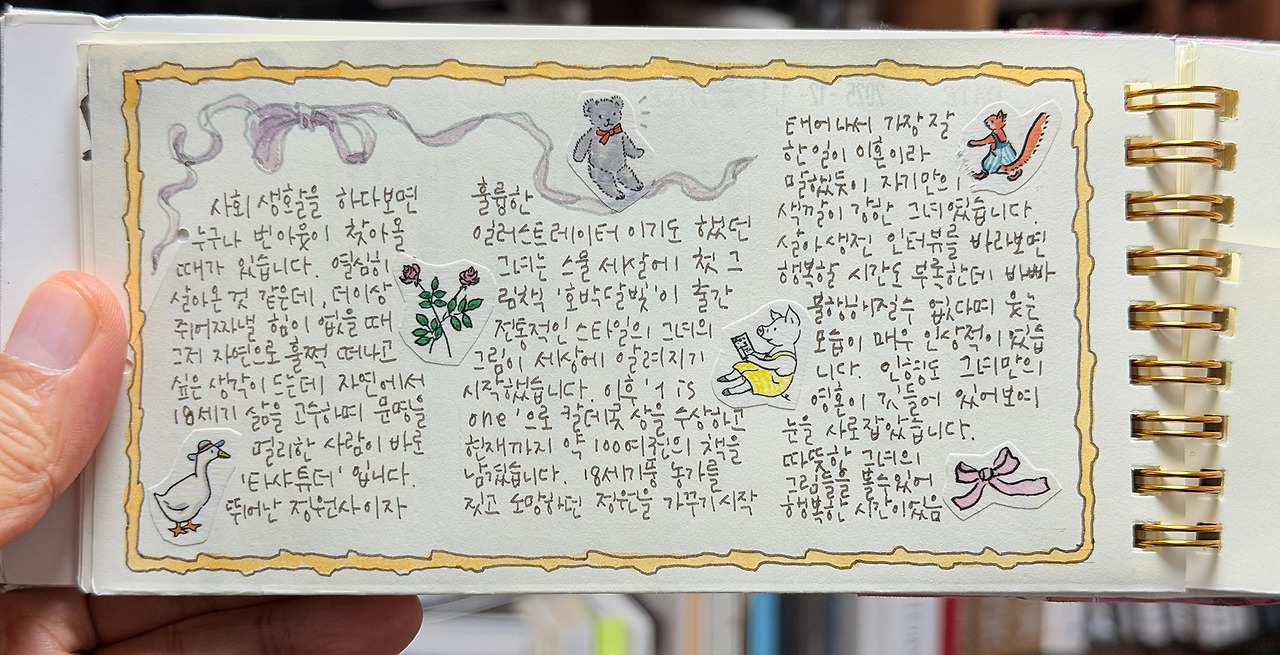 사회 생활을 하다보면
누구나 번아웃이 찾아올
때가 있습니다. 열심히
살아온 것 같은데, 더이상
쥐어짜낼 힘이 없을 때
그저 자연으로 훌쩍 떠나고
싶은 생각이 드는데 자연에서
18세기 삶을 고수하며 문명을
멀리한 사람이 바로
'타샤 튜더' 입니다.
뛰어난 정원사이자
훌륩한
일러스트레이터 이기도 했던
그녀는 스물 세살에 첫 그
림책 '호박달빛'이 출간
전통적인 스타일의 그녀의
그림이 세상에 알려지기
시작했습니다. 이후 '1 is
one'으로 칼데콧 상을 수상하고
현재까지 약 100여권의 책을
남겼습니다. 18세기풍 농가를
짓고 소망하던 정원을 가꾸기시작
태어나서 가장 잘
한 일이 이혼이라
말했듯이 자기만의
색깔이 강한 그녀였습니다.
살아생전 인터뷰를 바라보면
행복할 시간도 부족한데 바빠
불행해질수 없다며 웃는
모습이 매우 인상적이 였습
니다. 인형도 그녀만의
영혼이 깃들어 있어보여
눈을 사로잡았습니다.
따뜻한 그녀의
그림들을 볼수있어
행복한 시간이였음